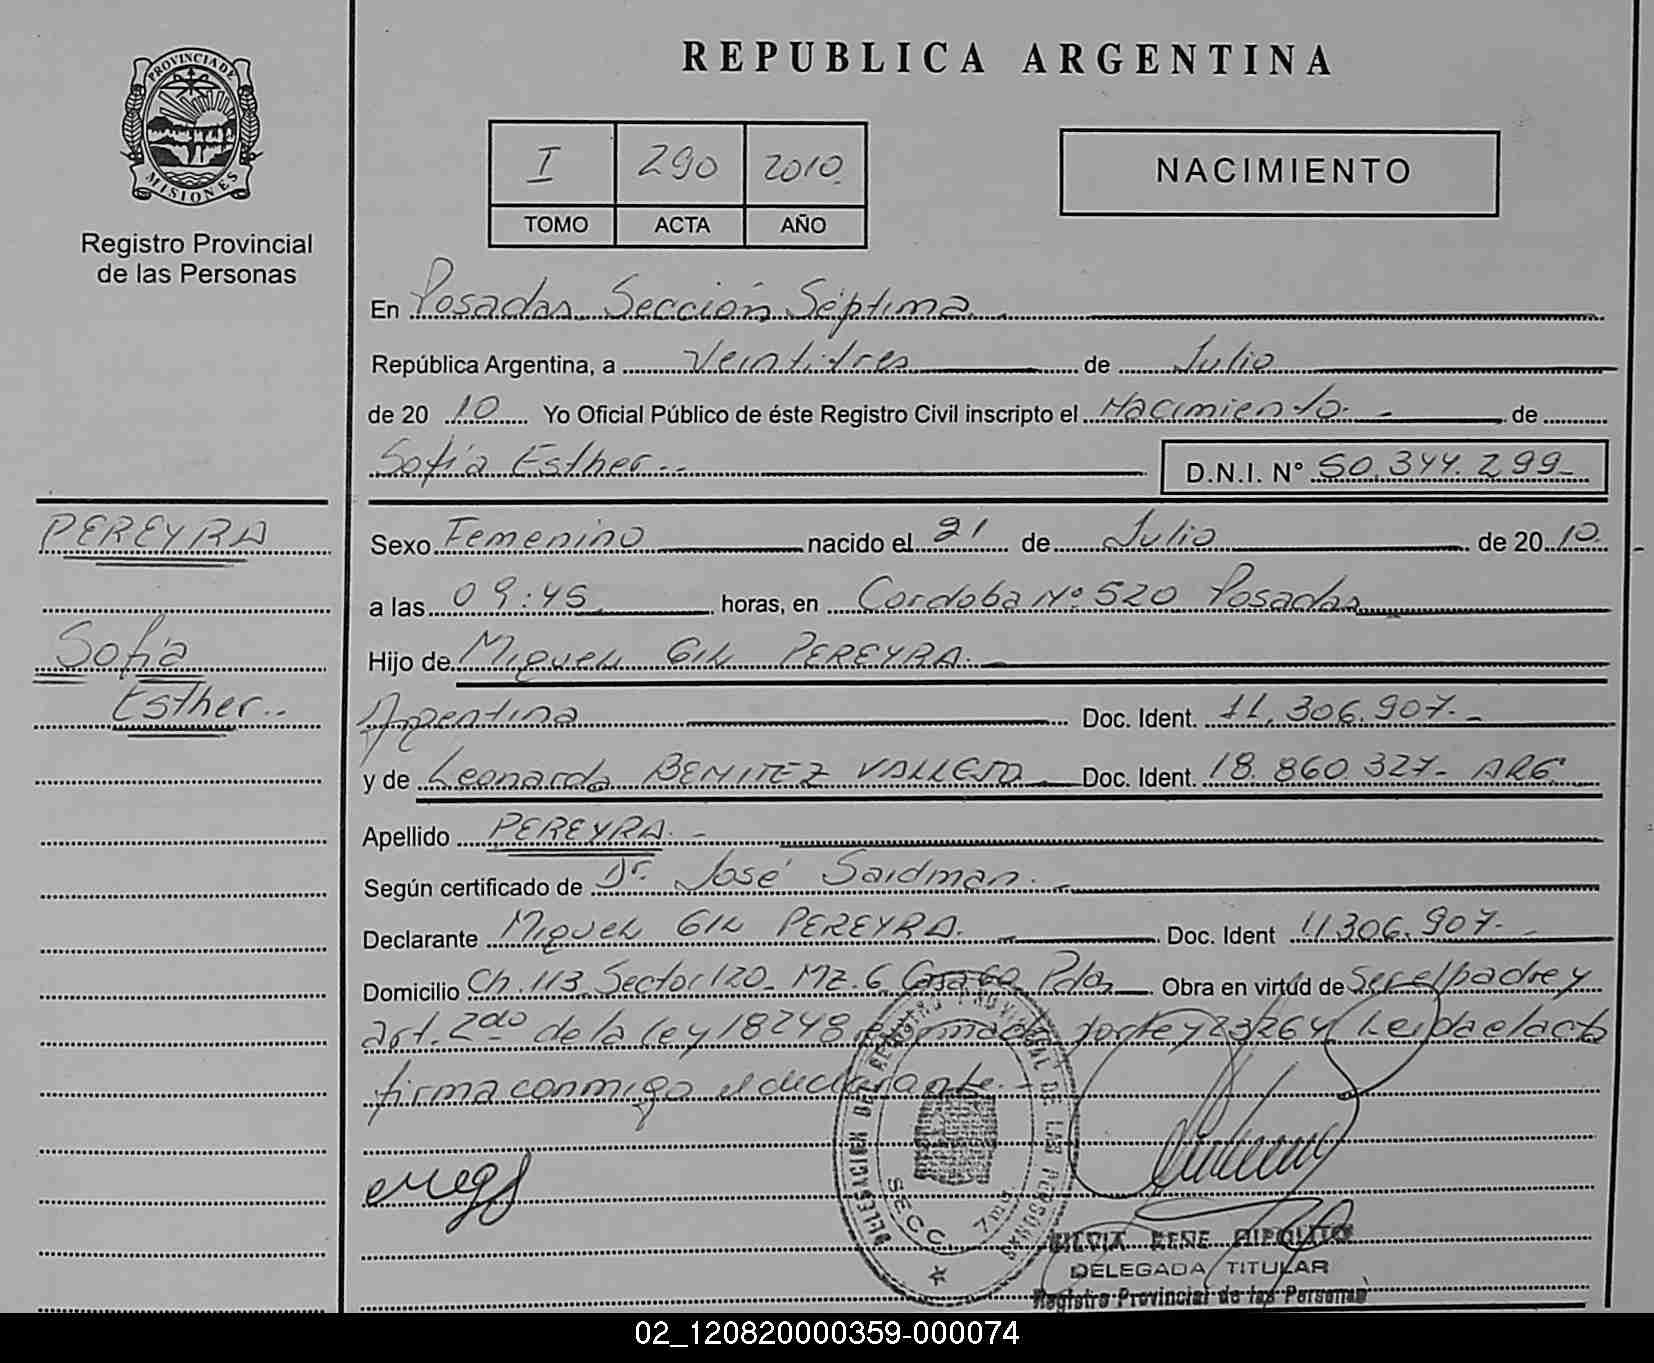 REPUBLICA ARGENTINA
PROVINCIA DE
MISIONES
Registro Provincial
de las Personas
I 290 2010
TOMO ACTA AÑO
NACIMIENTO
En Posadas Sección Séptima
República Argentina, a Veintitres de Julio
de 20 10 Yo Oficial Público de éste Registro Civil inscripto el Nacimiento de
Sofía Esther D.N.I. N° 50.344.299
PEREYRA
Sofía
Esther
Sexo Femenino nacido el 21 de Julio de 20 10
a las 09:45 horas, en Cordoba Nº 520 Posadas
Hijo de Miguel GIL PEREYRA
Argentina Doc. Ident. 11.306.907
y de Leonarda BENITEZ VALLEJO Doc. Ident. 18.860.327 ARG
Apellido PEREYRA
Según certificado de Dr. José Saidman
Declarante Miguel GIL PEREYRA Doc. Ident 11306.907
Domicilio Ch. 113 Sector 120 Mz. 6 Casa Pdas Obra en virtud de Ser el padre y
art. 2do de la Ley 18248 por Ley 23264 Leida el acta
firma conmigo el declarante
DELEGACION DEL REGISTRO PROVINCIAL DE LAS PERSONAS
SECC. 7ma
SILVIA RENE HIPOLITO
DELEGADA TITULAR
Registro Provincial de las Personas
02_120820000359-000074